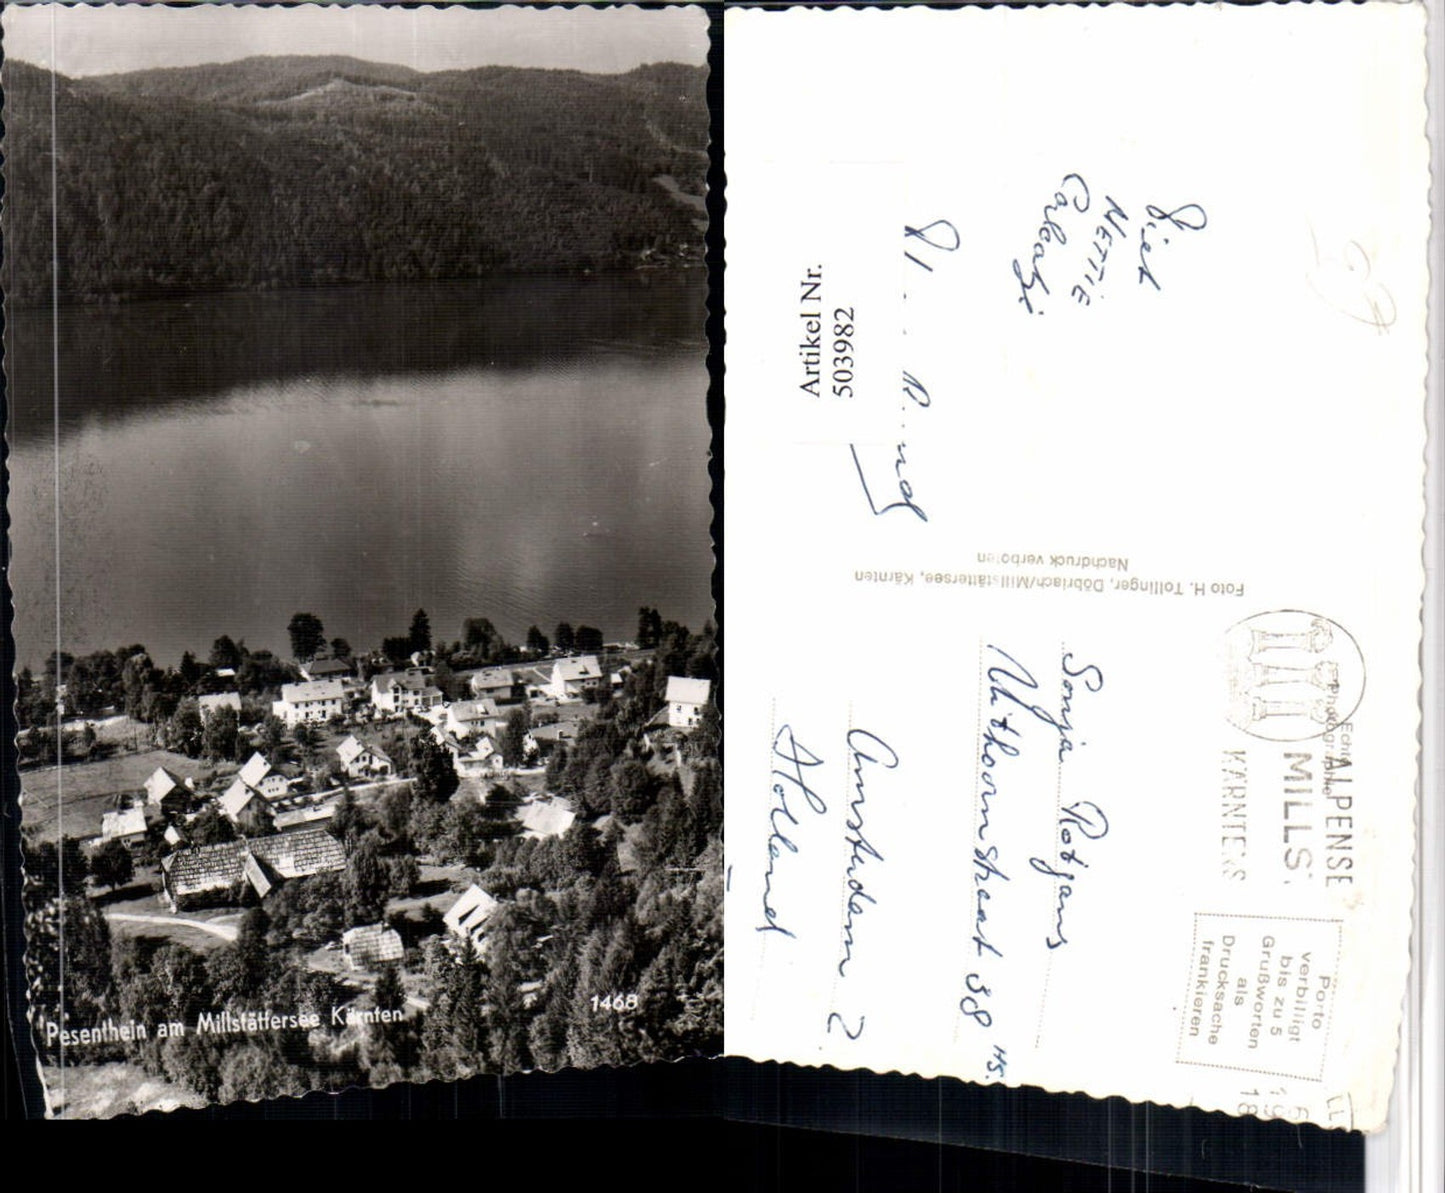 Pesenthein am Millstättersee Kärnten
1468
Piet
NETTIE
Carlootje
Artikel Nr.
503982
Foto H. Tollinger, Döbriach/Millstättersee, Kärnten
Nachdruck verboten
Echte
Photographie
ALPENSEE
MILLS
KÄRNTEN
Porto
verbilligt
bis zu 5
Grußworten
als
Drucksache
frankieren
Sonja Rotgans
Uithoornstraat 38 HS.
Amsterdam 2
Holland